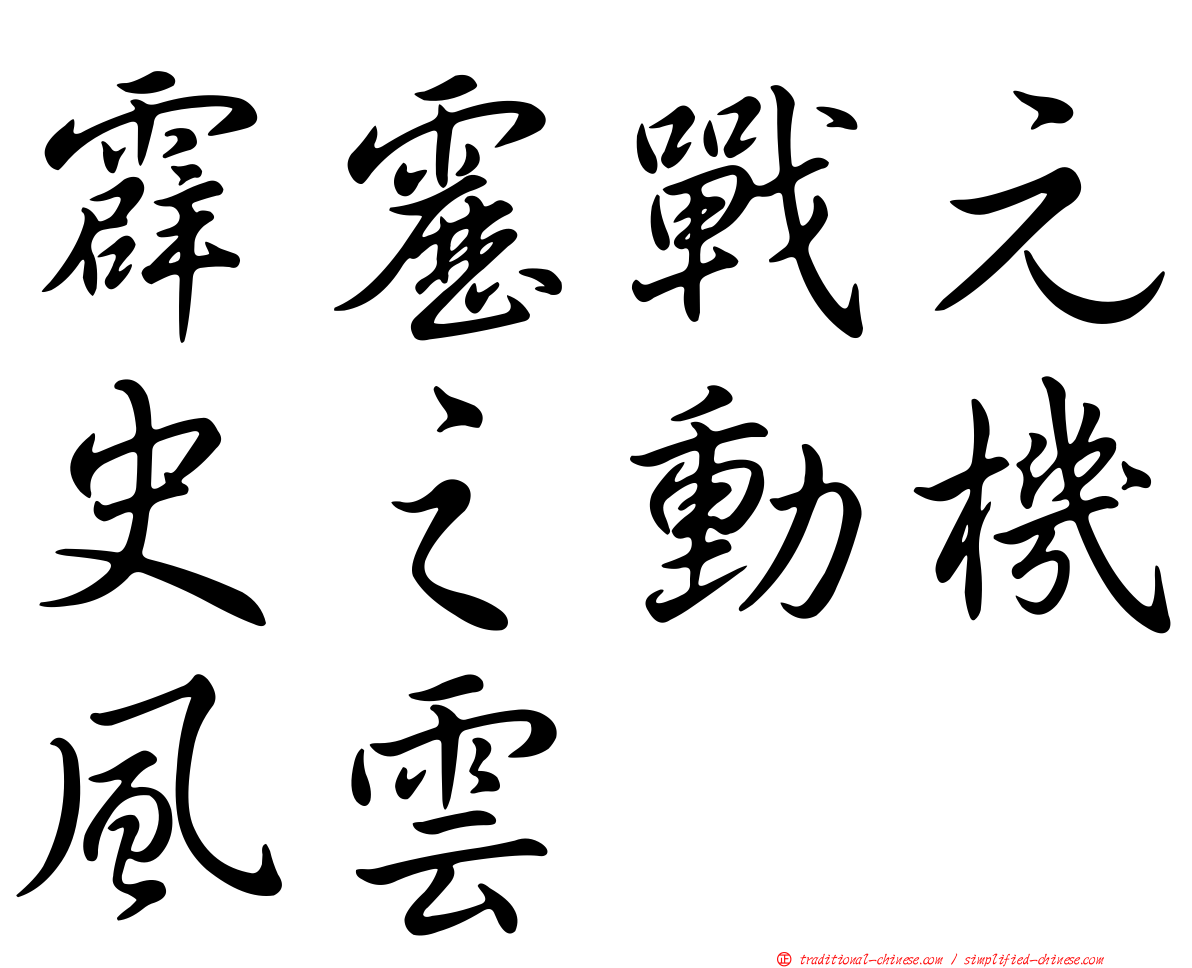 霹靂戰元
史之動機
風雲
正 traditional-chinese.com / simplified-chinese.com